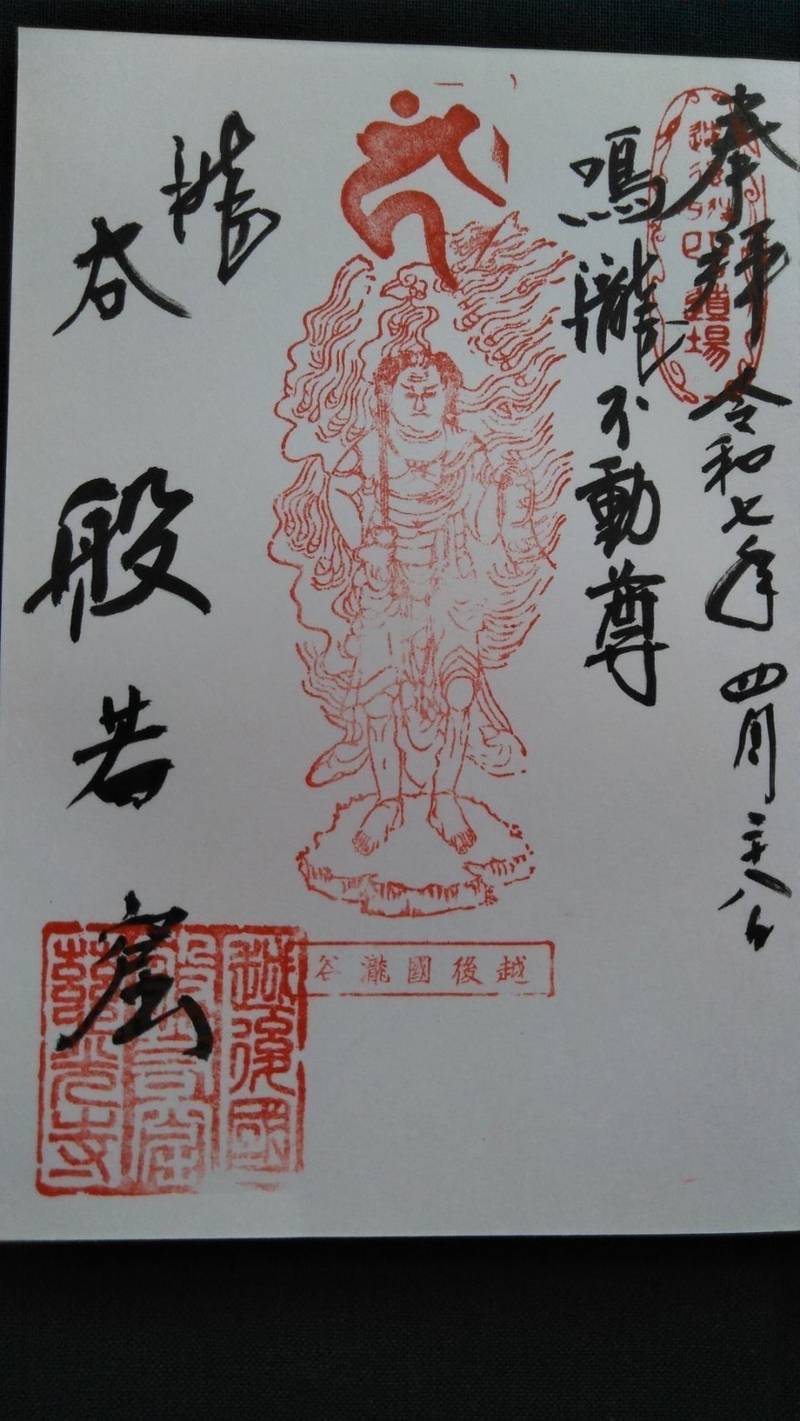 奉拝
令和七年四月二十八日
鳴瀧不動尊
瀧谷
般若窟
越後國瀧谷
越後國
般若窟
慈光寺
霊場